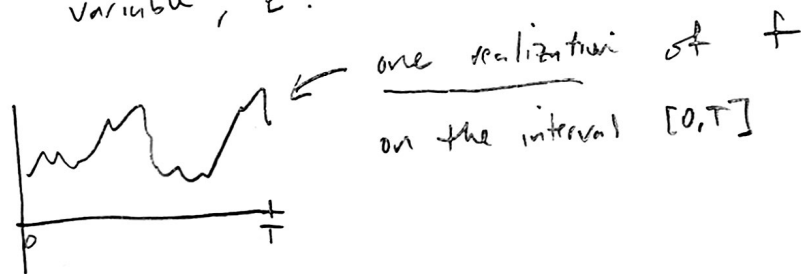 variable, t.
one realization of f
on the interval [0,T]
0 T